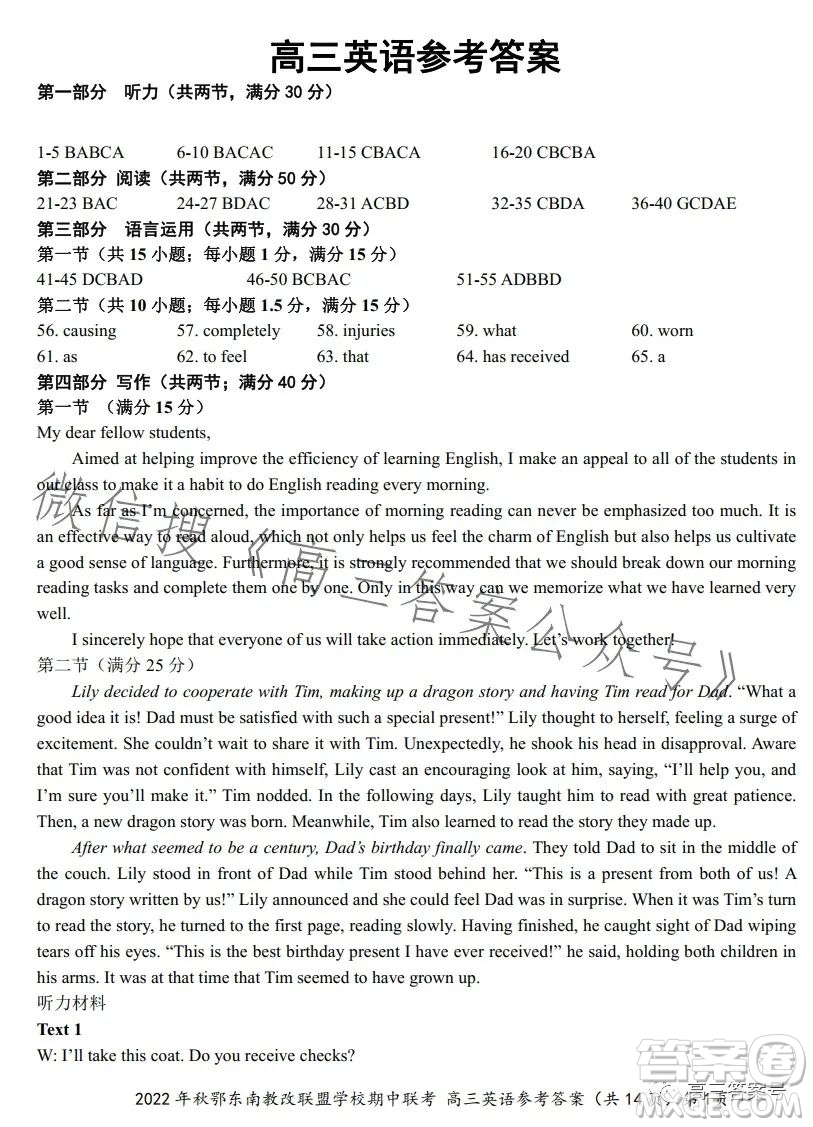 高三英语参考答案
第一部分 听力（共两节，满分 30 分）
1-5 BABCA 6-10 BACAC 11-15 CBACA 16-20 CBCBA
第二部分 阅读（共两节，满分 50 分）
21-23 BAC 24-27 BDAC 28-31 ACBD 32-35 CBDA 36-40 GCDAE
第三部分 语言运用（共两节，满分 30 分）
第一节（共 15 小题；每小题 1 分，满分 15 分）
41-45 DCBAD 46-50 BCBAC 51-55 ADBBD
第二节（共 10 小题；每小题 1.5 分，满分 15 分）
56. causing 57. completely 58. injuries 59. what 60. worn
61. as 62. to feel 63. that 64. has received 65. a
第四部分 写作（共两节；满分 40 分）
第一节 （满分 15 分）
My dear fellow students,
Aimed at helping improve the efficiency of learning English, I make an appeal to all of the students in
our class to make it a habit to do English reading every morning.
As far as I’m concerned, the importance of morning reading can never be emphasized too much. It is
an effective way to read aloud, which not only helps us feel the charm of English but also helps us cultivate
a good sense of language. Furthermore, it is strongly recommended that we should break down our morning
reading tasks and complete them one by one. Only in this way can we memorize what we have learned very
well.
I sincerely hope that everyone of us will take action immediately. Let’s work together!
第二节（满分 25 分）
Lily decided to cooperate with Tim, making up a dragon story and having Tim read for Dad. “What a
good idea it is! Dad must be satisfied with such a special present!” Lily thought to herself, feeling a surge of
excitement. She couldn’t wait to share it with Tim. Unexpectedly, he shook his head in disapproval. Aware
that Tim was not confident with himself, Lily cast an encouraging look at him, saying, “I’ll help you, and
I’m sure you’ll make it.” Tim nodded. In the following days, Lily taught him to read with great patience.
Then, a new dragon story was born. Meanwhile, Tim also learned to read the story they made up.
After what seemed to be a century, Dad’s birthday finally came. They told Dad to sit in the middle of
the couch. Lily stood in front of Dad while Tim stood behind her. “This is a present from both of us! A
dragon story written by us!” Lily announced and she could feel Dad was in surprise. When it was Tim’s turn
to read the story, he turned to the first page, reading slowly. Having finished, he caught sight of Dad wiping
tears off his eyes. “This is the best birthday present I have ever received!” he said, holding both children in
his arms. It was at that time that Tim seemed to have grown up.
听力材料
Text 1
W: I’ll take this coat. Do you receive checks?
2022 年秋鄂东南教改联盟学校期中联考 高三英语参考答案（共 14 页）第 1 页
微信搜《高三答案公众号》
答案圈
高三答案号